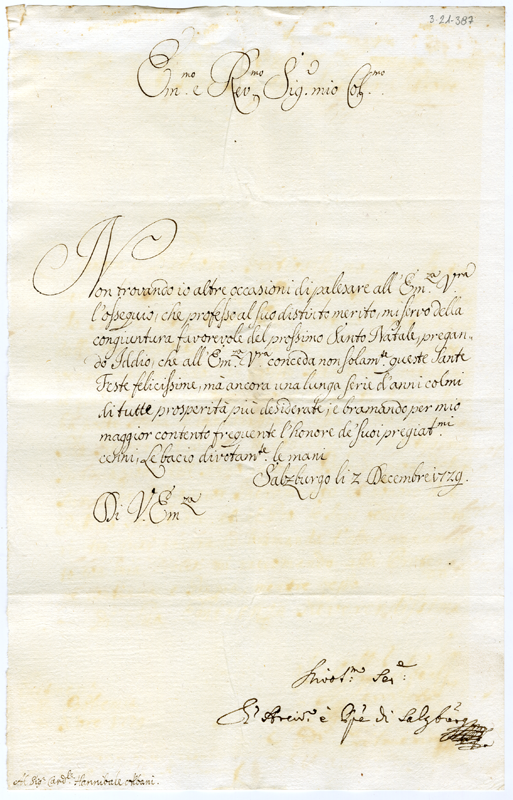 3-21-387
Em.mo e Rev.mo Sig.r mio Col.mo
Non trovando io altre occasioni di palesare all' Em.za V.ra
l'ossequio, che professo al suo distinto merito, mi servo della
congiuntura favorevole del prossimo Santo Natale, pregan-
do Iddio, che all' Em.za V.ra conceda non solam.te queste Sante
Feste felicissime, mà ancora una lunga serie d'anni colmi
di tutte prosperità più desiderate; e bramando per mio
maggior contento frequente l'honore de' suoi pregiat.mi
cenni, Le bacio divotam.te le mani
Salzburgo li 2 Decembre 1729.
Di V. Em.za
Divot.mo Ser.e
di Salzburg
Al Sig.r Card.le Hannibale Albani.